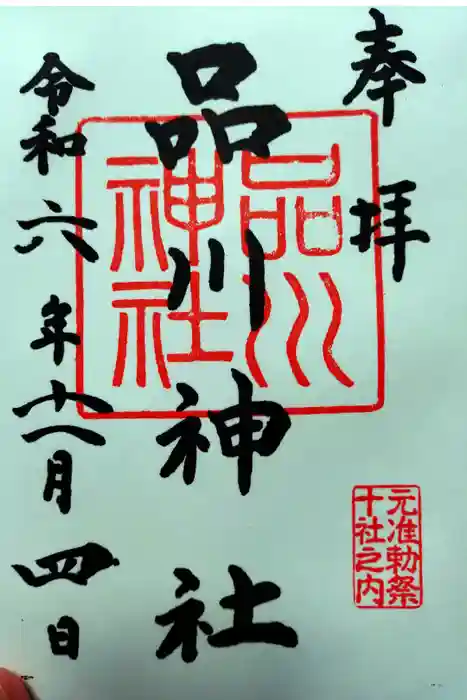 奉拝
品川神社
令和六年十一月四日
品川
神社
元准勅祭
十社之内